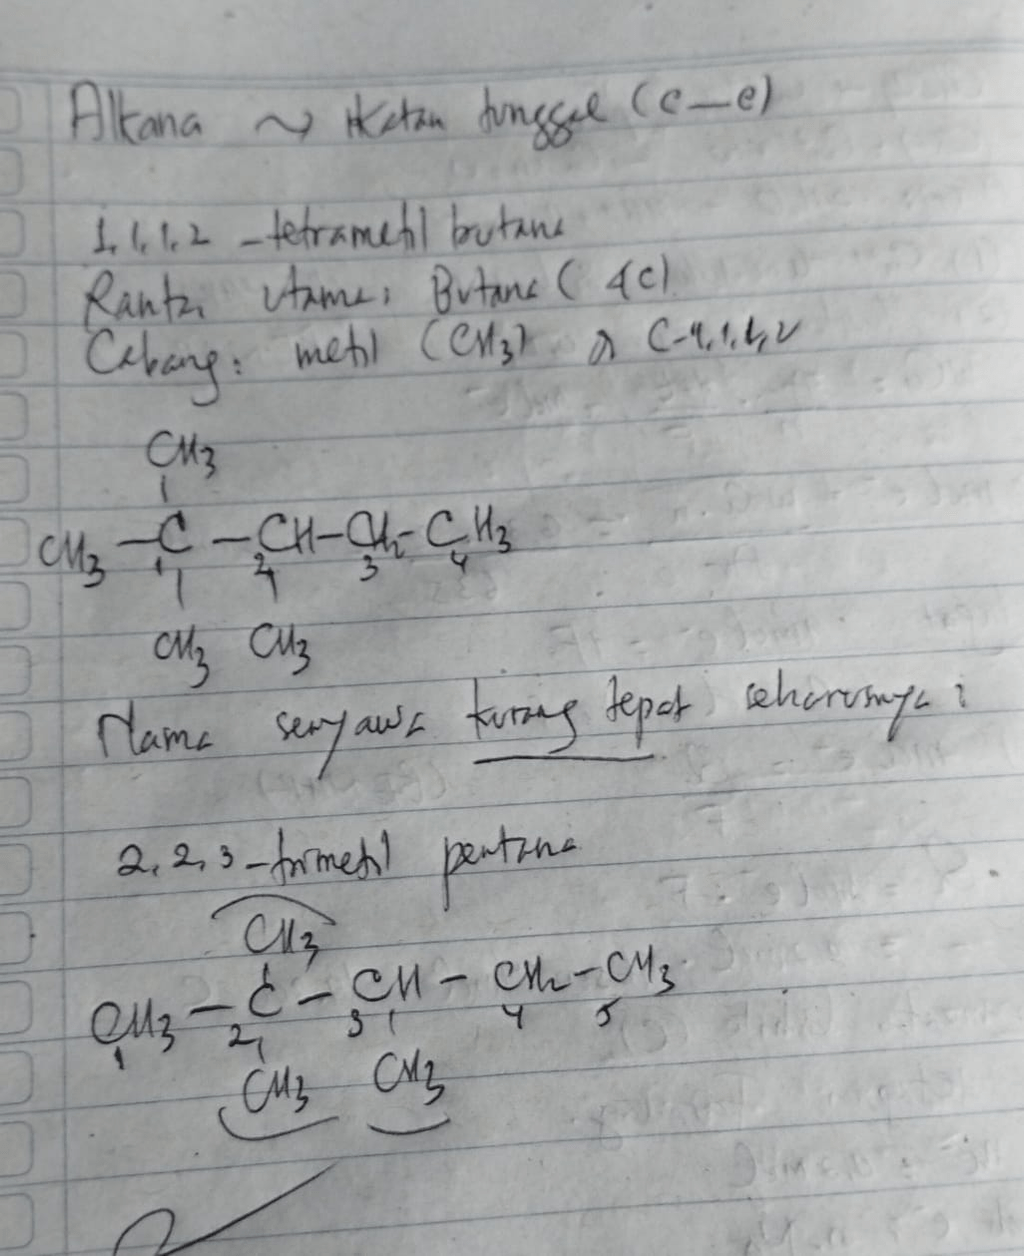 Alkana ~> Ikatan tunggal (C—C)
1,1,1,2 - tetrametil butana
Rantai utama: Butana (4C)
Cabang: metil (CH3)
CH3
CH3 - C - CH - CH2 - CH3
1 2 3 4
CH3 CH3
Nama senyawa kurang tepat, seharusnya:
2,2,3 - trimetil pentana
CH3
CH3 - C - CH - CH2 - CH3
1 2 3 4 5
CH3 CH3